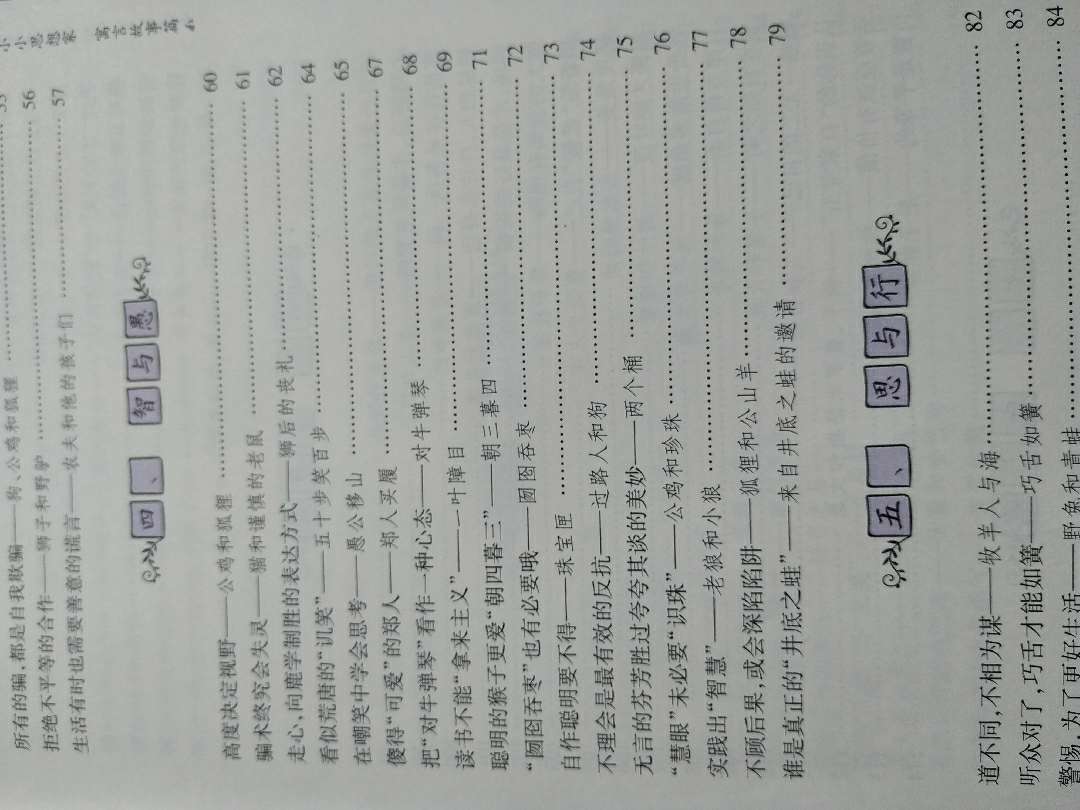 小小思想家 寓言故事篇
所有的骗,都是自我欺骗——狗、公鸡和狐狸 …… 55
拒绝不平等的合作——狮子和野驴 …… 56
生活有时也需要善意的谎言——农夫和他的孩子们 …… 57
四、智与愚
高度决定视野——公鸡和狐狸 …… 60
骗术终究会失灵——猫和谨慎的老鼠 …… 61
走心,向鹿学制胜的表达方式——狮后的丧礼 …… 62
看似荒唐的“讥笑”——五十步笑百步 …… 64
在嘲笑中学会思考——愚公移山 …… 65
傻得“可爱”的郑人——郑人买履 …… 67
把“对牛弹琴”看作一种心态——对牛弹琴 …… 68
读书不能“拿来主义”——一叶障目 …… 69
聪明的猴子更爱“朝四暮三”——朝三暮四 …… 71
“囫囵吞枣”也有必要哦——囫囵吞枣 …… 72
自作聪明要不得——珠宝匣 …… 73
不理会是最有效的反抗——过路人和狗 …… 74
无言的芬芳胜过夸夸其谈的美妙——两个桶 …… 75
“慧眼”未必要“识珠”——公鸡和珍珠 …… 76
实践出“智慧”——老狼和小狼 …… 77
不顾后果,或会深陷陷阱——狐狸和公山羊 …… 78
谁是真正的“井底之蛙”——来自井底之蛙的邀请 …… 79
五、思与行
道不同,不相为谋——牧羊人与海 …… 82
听众对了,巧舌才能如簧——巧舌如簧 …… 83
警惕,为了更好生活——野兔和青蛙 …… 84